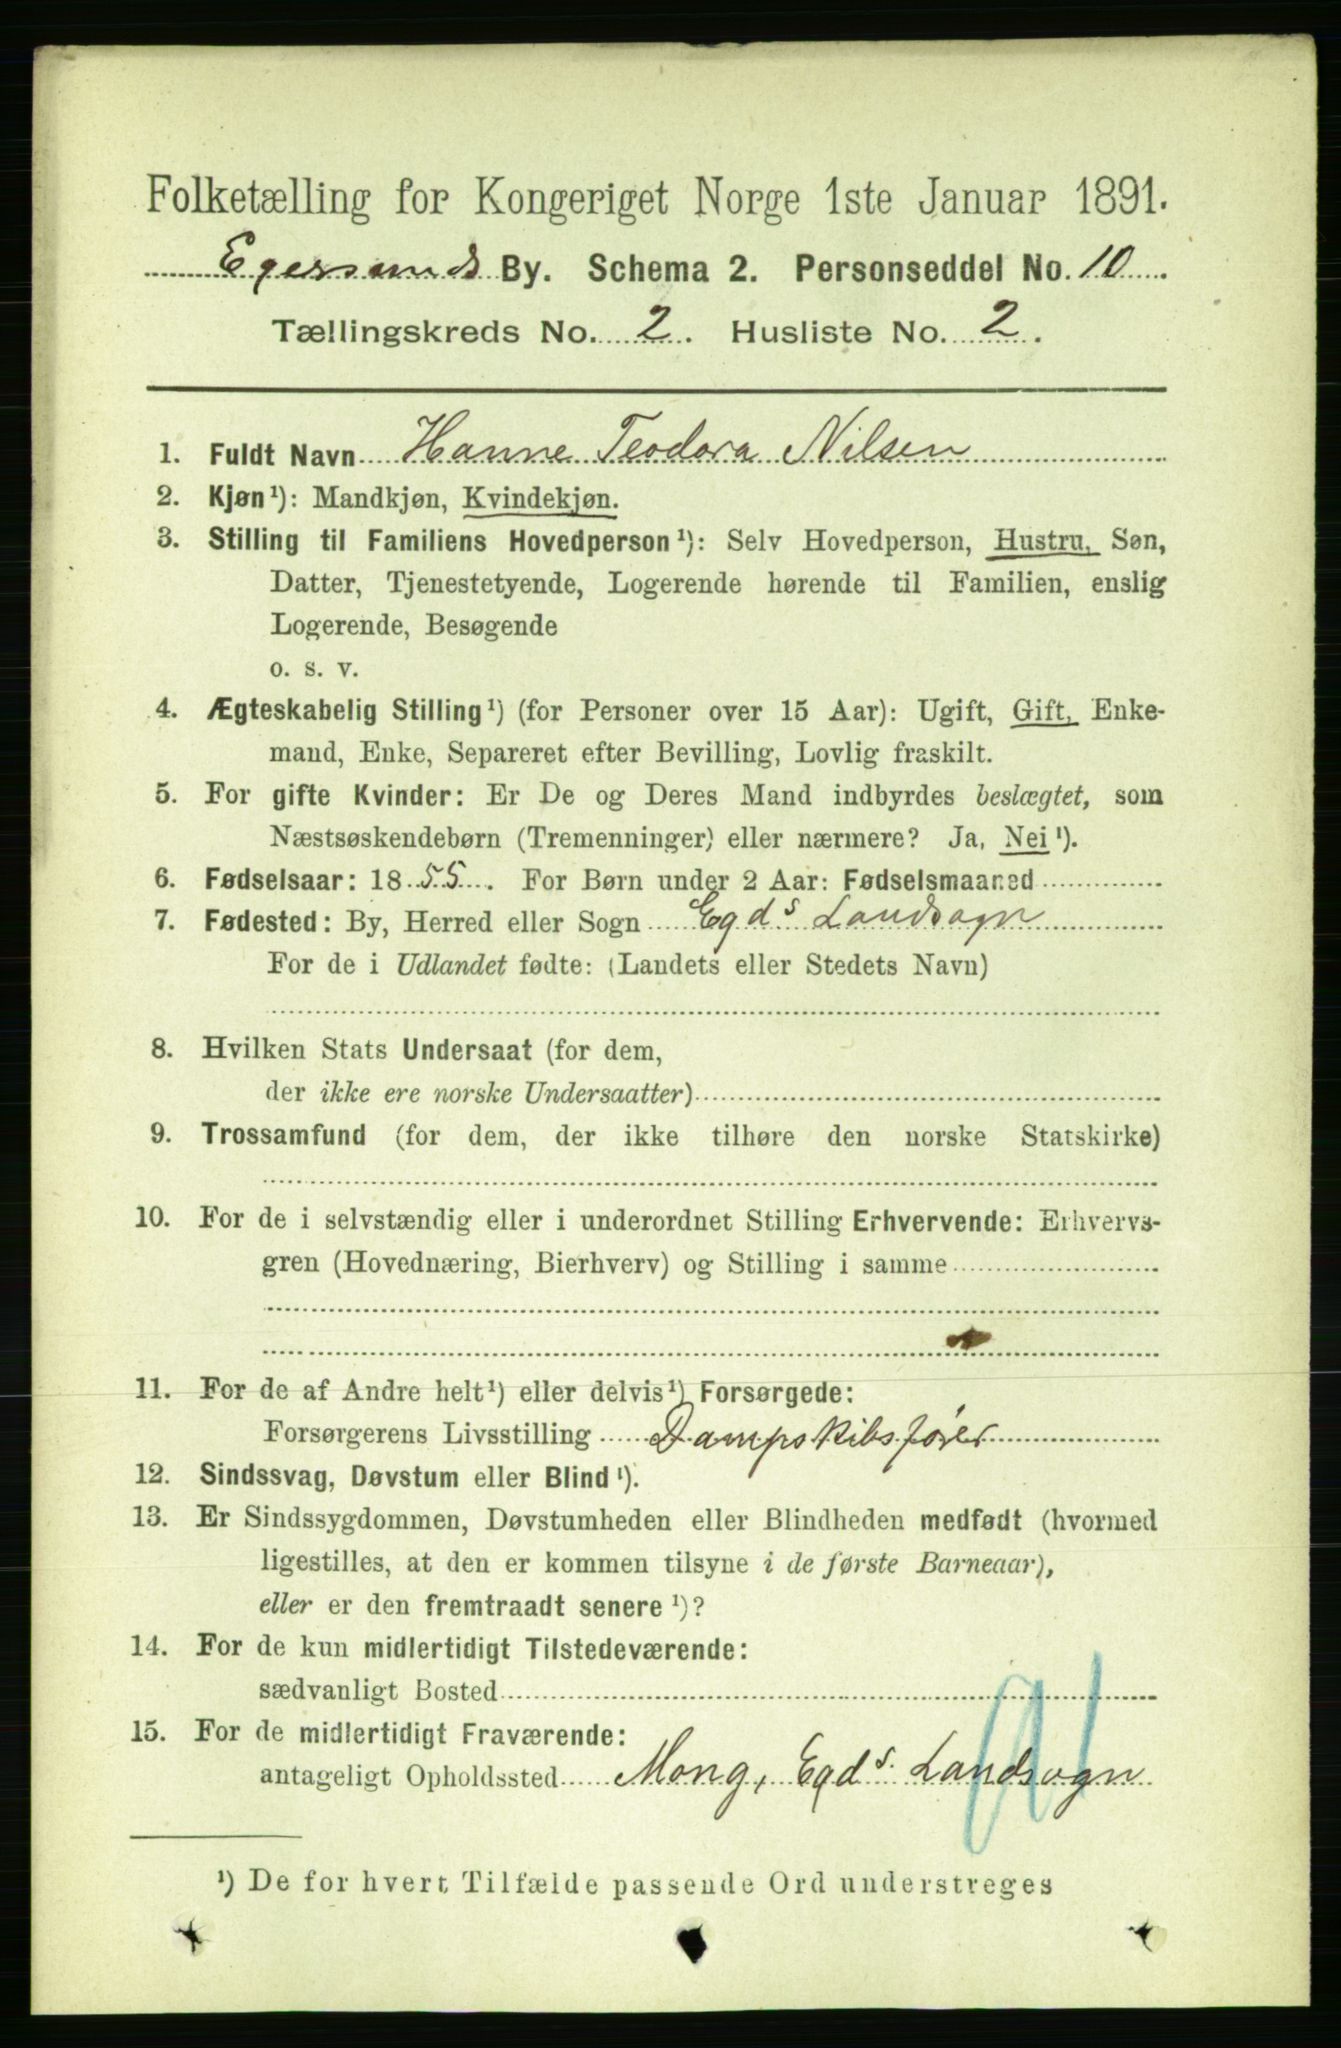 Folketælling for Kongeriget Norge 1ste Januar 1891.
Egersunds By. Schema 2. Personseddel No. 10
Tællingskreds No. 2. Husliste No. 2.
1. Fuldt Navn Hanne Teodora Nilsen
2. Kjøn¹): Mandkjøn, Kvindekjøn.
3. Stilling til Familiens Hovedperson¹): Selv Hovedperson, Hustru, Søn,
Datter, Tjenestetyende, Logerende hørende til Familien, enslig
Logerende, Besøgende
o. s. v.
4. Ægteskabelig Stilling¹) (for Personer over 15 Aar): Ugift, Gift, Enke-
mand, Enke, Separeret efter Bevilling, Lovlig fraskilt.
5. For gifte Kvinder: Er De og Deres Mand indbyrdes beslægtet, som
Næstsøskendebørn (Tremenninger) eller nærmere? Ja, Nei¹).
6. Fødselsaar: 1855. For Børn under 2 Aar: Fødselsmaaned
7. Fødested: By, Herred eller Sogn Egds Landsogn
For de i Udlandet fødte: (Landets eller Stedets Navn)
8. Hvilken Stats Undersaat (for dem,
der ikke ere norske Undersaatter)
9. Trossamfund (for dem, der ikke tilhøre den norske Statskirke)
10. For de i selvstændig eller i underordnet Stilling Erhvervende: Erhvervs-
gren (Hovednæring, Bierhverv) og Stilling i samme
11. For de af Andre helt¹) eller delvis¹) Forsørgede:
Forsørgerens Livsstilling Dampskibsfører
12. Sindssvag, Døvstum eller Blind¹).
13. Er Sindssygdommen, Døvstumheden eller Blindheden medfødt (hvormed
ligestilles, at den er kommen tilsyne i de første Barneaar),
eller er den fremtraadt senere¹)?
14. For de kun midlertidigt Tilstedeværende:
sædvanligt Bosted
15. For de midlertidigt Fraværende:
antageligt Opholdssted Mong, Egds. Landsogn
¹) De for hvert Tilfælde passende Ord understreges